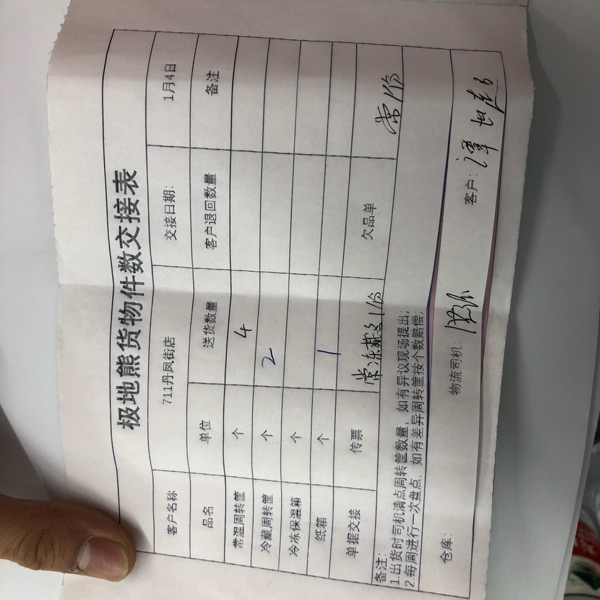 极地熊货物件数交接表
客户名称 711丹凤街店 交接日期: 1月4日
品名 单位 送货数量 客户退回数量 备注
常温周转筐 个 4
冷藏周转筐 个 2
冷冻保温箱 个
纸箱 个 1
单据交接 传票 欠品单
备注:
1.出货时司机清点周转筐数量，如有异议现场提出;
2.每周进行一次盘点，如有差异周转筐按个数赔偿;
仓库: 物流司机: 客户: